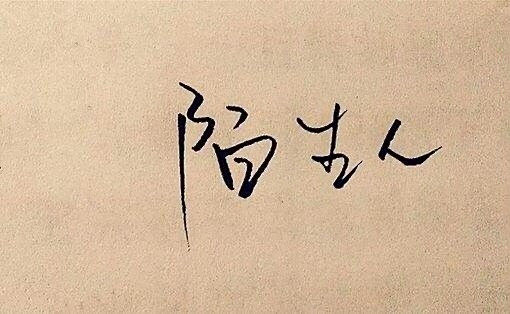 陌生人